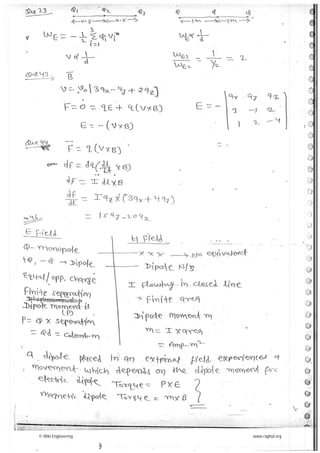 Que 23 Q1 Q2 Q3 Q Q Q
WE = - 1/2 Σ qi Vi i=1 3 WE ∝ 1/d
V ∝ 1/d WE1/WE2 = 1/½ = 2
Que 42, B
V = V0 [3ax - ay + 2az]
F = 0 = qE + q(V×B) E = - | ax ay az | 3 -1 2 | 1 2 -4 |
E = - (V×B)
F = q(V×B)
df = dq(dl/dt × B)
df = I dl×B
df/dl = I az × (3ax + 4ay)
= 15ay - 20ax
E field H field
Q - monopole × × × → No equivalent
+Q, -Q → Dipole Dipole N/S
Equal/opp. charge I flowing in closed line
Finite separation = finite area
Dipole moment is (P) Dipole moment m
P = Q × separation m = I × area
= Qd = Coloumb-m = Amp-m²
a dipole placed in an external field experiences a
movement which depends on the dipole moment
electric dipole Torque = P×E
magnetic dipole Torque = m×B
© Wiki Engineering www.raghul.org
3